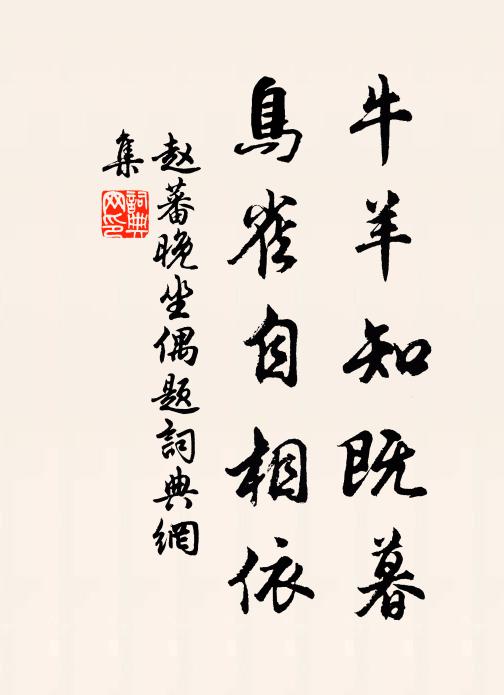 牛羊知既暮
鳥雀自相依
赵蕃晚坐偶题詞典網
集
詞典網印